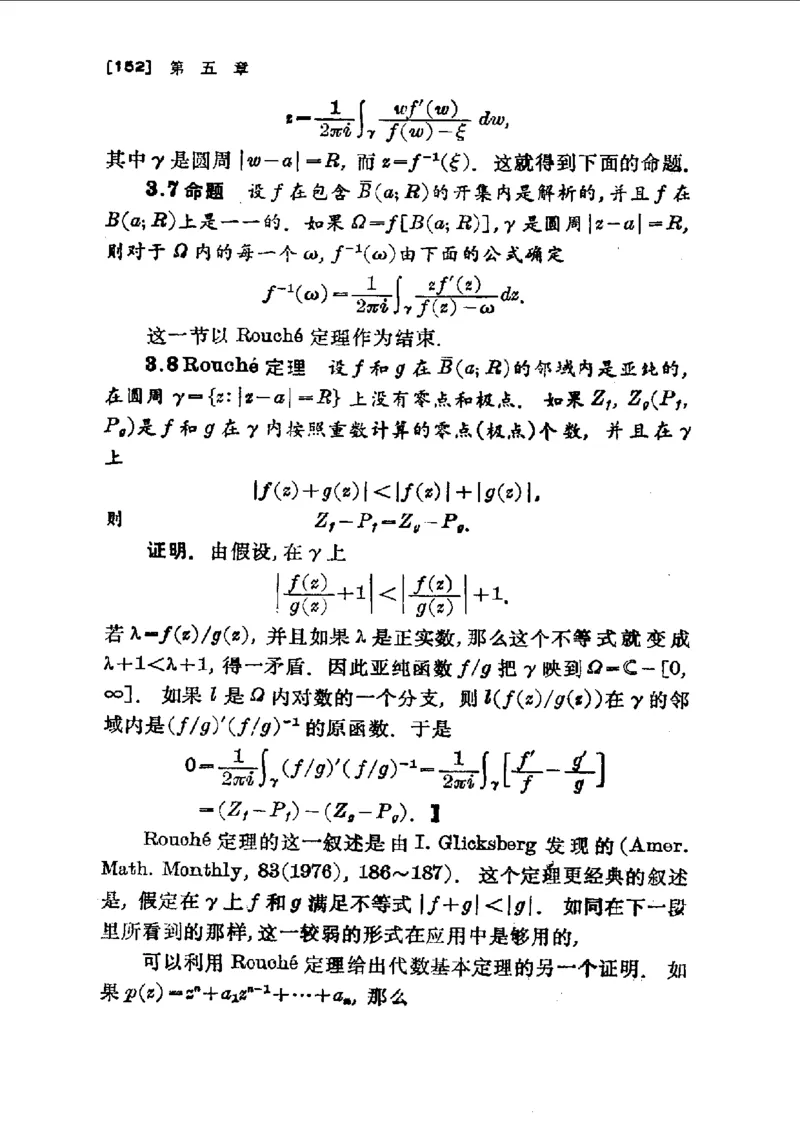 [152] 第 五 章
z=\frac{1}{2πi}∫_γ \frac{wf'(w)}{f(w)-ξ} dw,
其中 γ 是圆周 |w-a|=R, 而 z=f^{-1}(ξ). 这就得到下面的命题.
3.7 命题 设 f 在包含 \bar{B}(a; R) 的开集内是解析的, 并且 f 在
B(a; R) 上是一一的. 如果 Ω=f[B(a; R)], γ 是圆周 |z-a|=R,
则对于 Ω 内的每一个 ω, f^{-1}(ω) 由下面的公式确定
f^{-1}(ω)=\frac{1}{2πi}∫_γ \frac{zf'(z)}{f(z)-ω} dz.
这一节以 Rouché 定理作为结束.
3.8 Rouché 定理 设 f 和 g 在 \bar{B}(a; R) 的邻域内是亚纯的,
在圆周 γ={z: |z-a|=R} 上没有零点和极点. 如果 Z_f, Z_g(P_f,
P_g) 是 f 和 g 在 γ 内按照重数计算的零点(极点)个数, 并且在 γ
上
|f(z)+g(z)|<|f(z)|+|g(z)|,
则 Z_f-P_f=Z_g-P_g.
证明. 由假设, 在 γ 上
|\frac{f(z)}{g(z)}+1|<|\frac{f(z)}{g(z)}|+1.
若 λ=f(z)/g(z), 并且如果 λ 是正实数, 那么这个不等式就变成
λ+1<λ+1, 得一矛盾. 因此亚纯函数 f/g 把 γ 映到 Ω=ℂ-[0,
∞]. 如果 l 是 Ω 内对数的一个分支, 则 l(f(z)/g(z)) 在 γ 的邻
域内是 (f/g)'(f/g)^{-1} 的原函数. 于是
0=\frac{1}{2πi}∫_γ (f/g)'(f/g)^{-1}=\frac{1}{2πi}∫_γ [\frac{f'}{f}-\frac{g'}{g}]
=(Z_f-P_f)-(Z_g-P_g). 】
Rouché 定理的这一叙述是由 I. Glicksberg 发现的 (Amer.
Math. Monthly, 83(1976), 186～187). 这个定理更经典的叙述
是, 假定在 γ 上 f 和 g 满足不等式 |f+g|<|g|. 如同在下一段
里所看到的那样, 这一较弱的形式在应用中是够用的,
可以利用 Rouché 定理给出代数基本定理的另一个证明. 如
果 p(z)=z^n+a_1z^{n-1}+…+a_n, 那么